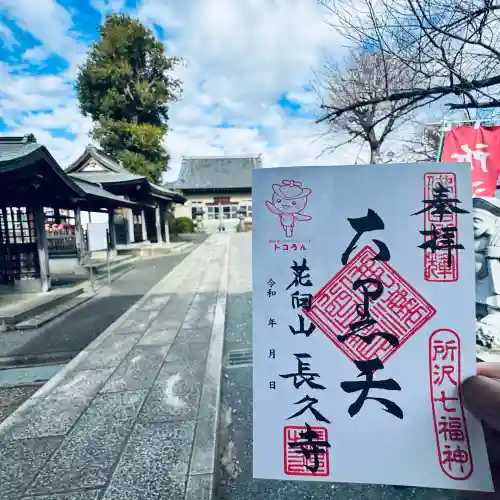 奉拝
大黒天
花向山 長久寺
令和 年 月 日
トコろん
所沢七福神
所